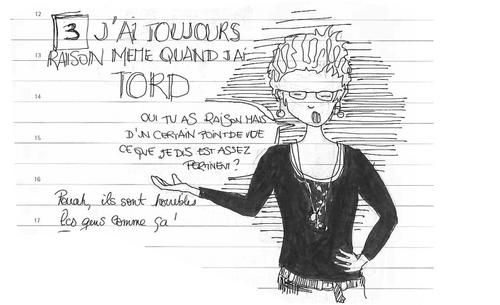 12
3 J'AI TOUJOURS
13
RAISON MEME QUAND J'AI
TORD
14
OUI TU AS RAISON MAIS
D'UN CERTAIN POINT DE VUE
15
CE QUE JE DIS EST ASSEZ
PERTINENT?
16
Pouah, ils sont horribles
17
les gens comme ça!